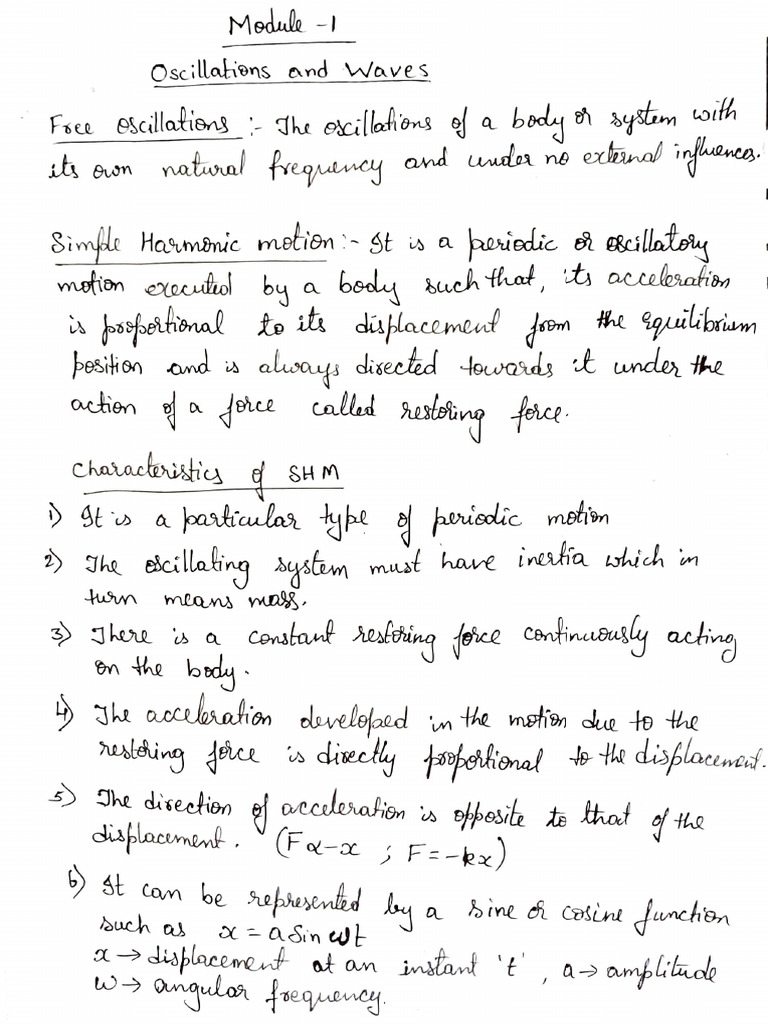 Module -1
Oscillations and Waves
Free oscillations :- The oscillations of a body or system with
its own natural frequency and under no external influences.
Simple Harmonic motion :- It is a periodic or oscillatory
motion executed by a body such that, its acceleration
is proportional to its displacement from the equilibrium
position and is always directed towards it under the
action of a force called restoring force.
Characteristics of SHM
1) It is a particular type of periodic motion
2) The oscillating system must have inertia which in
turn means mass.
3) There is a constant restoring force continuously acting
on the body.
4) The acceleration developed in the motion due to the
restoring force is directly proportional to the displacement.
5) The direction of acceleration is opposite to that of the
displacement. (F α -x ; F = -kx)
6) It can be represented by a sine or cosine function
such as x = a Sin ωt
x → displacement at an instant 't', a → amplitude
ω → angular frequency.